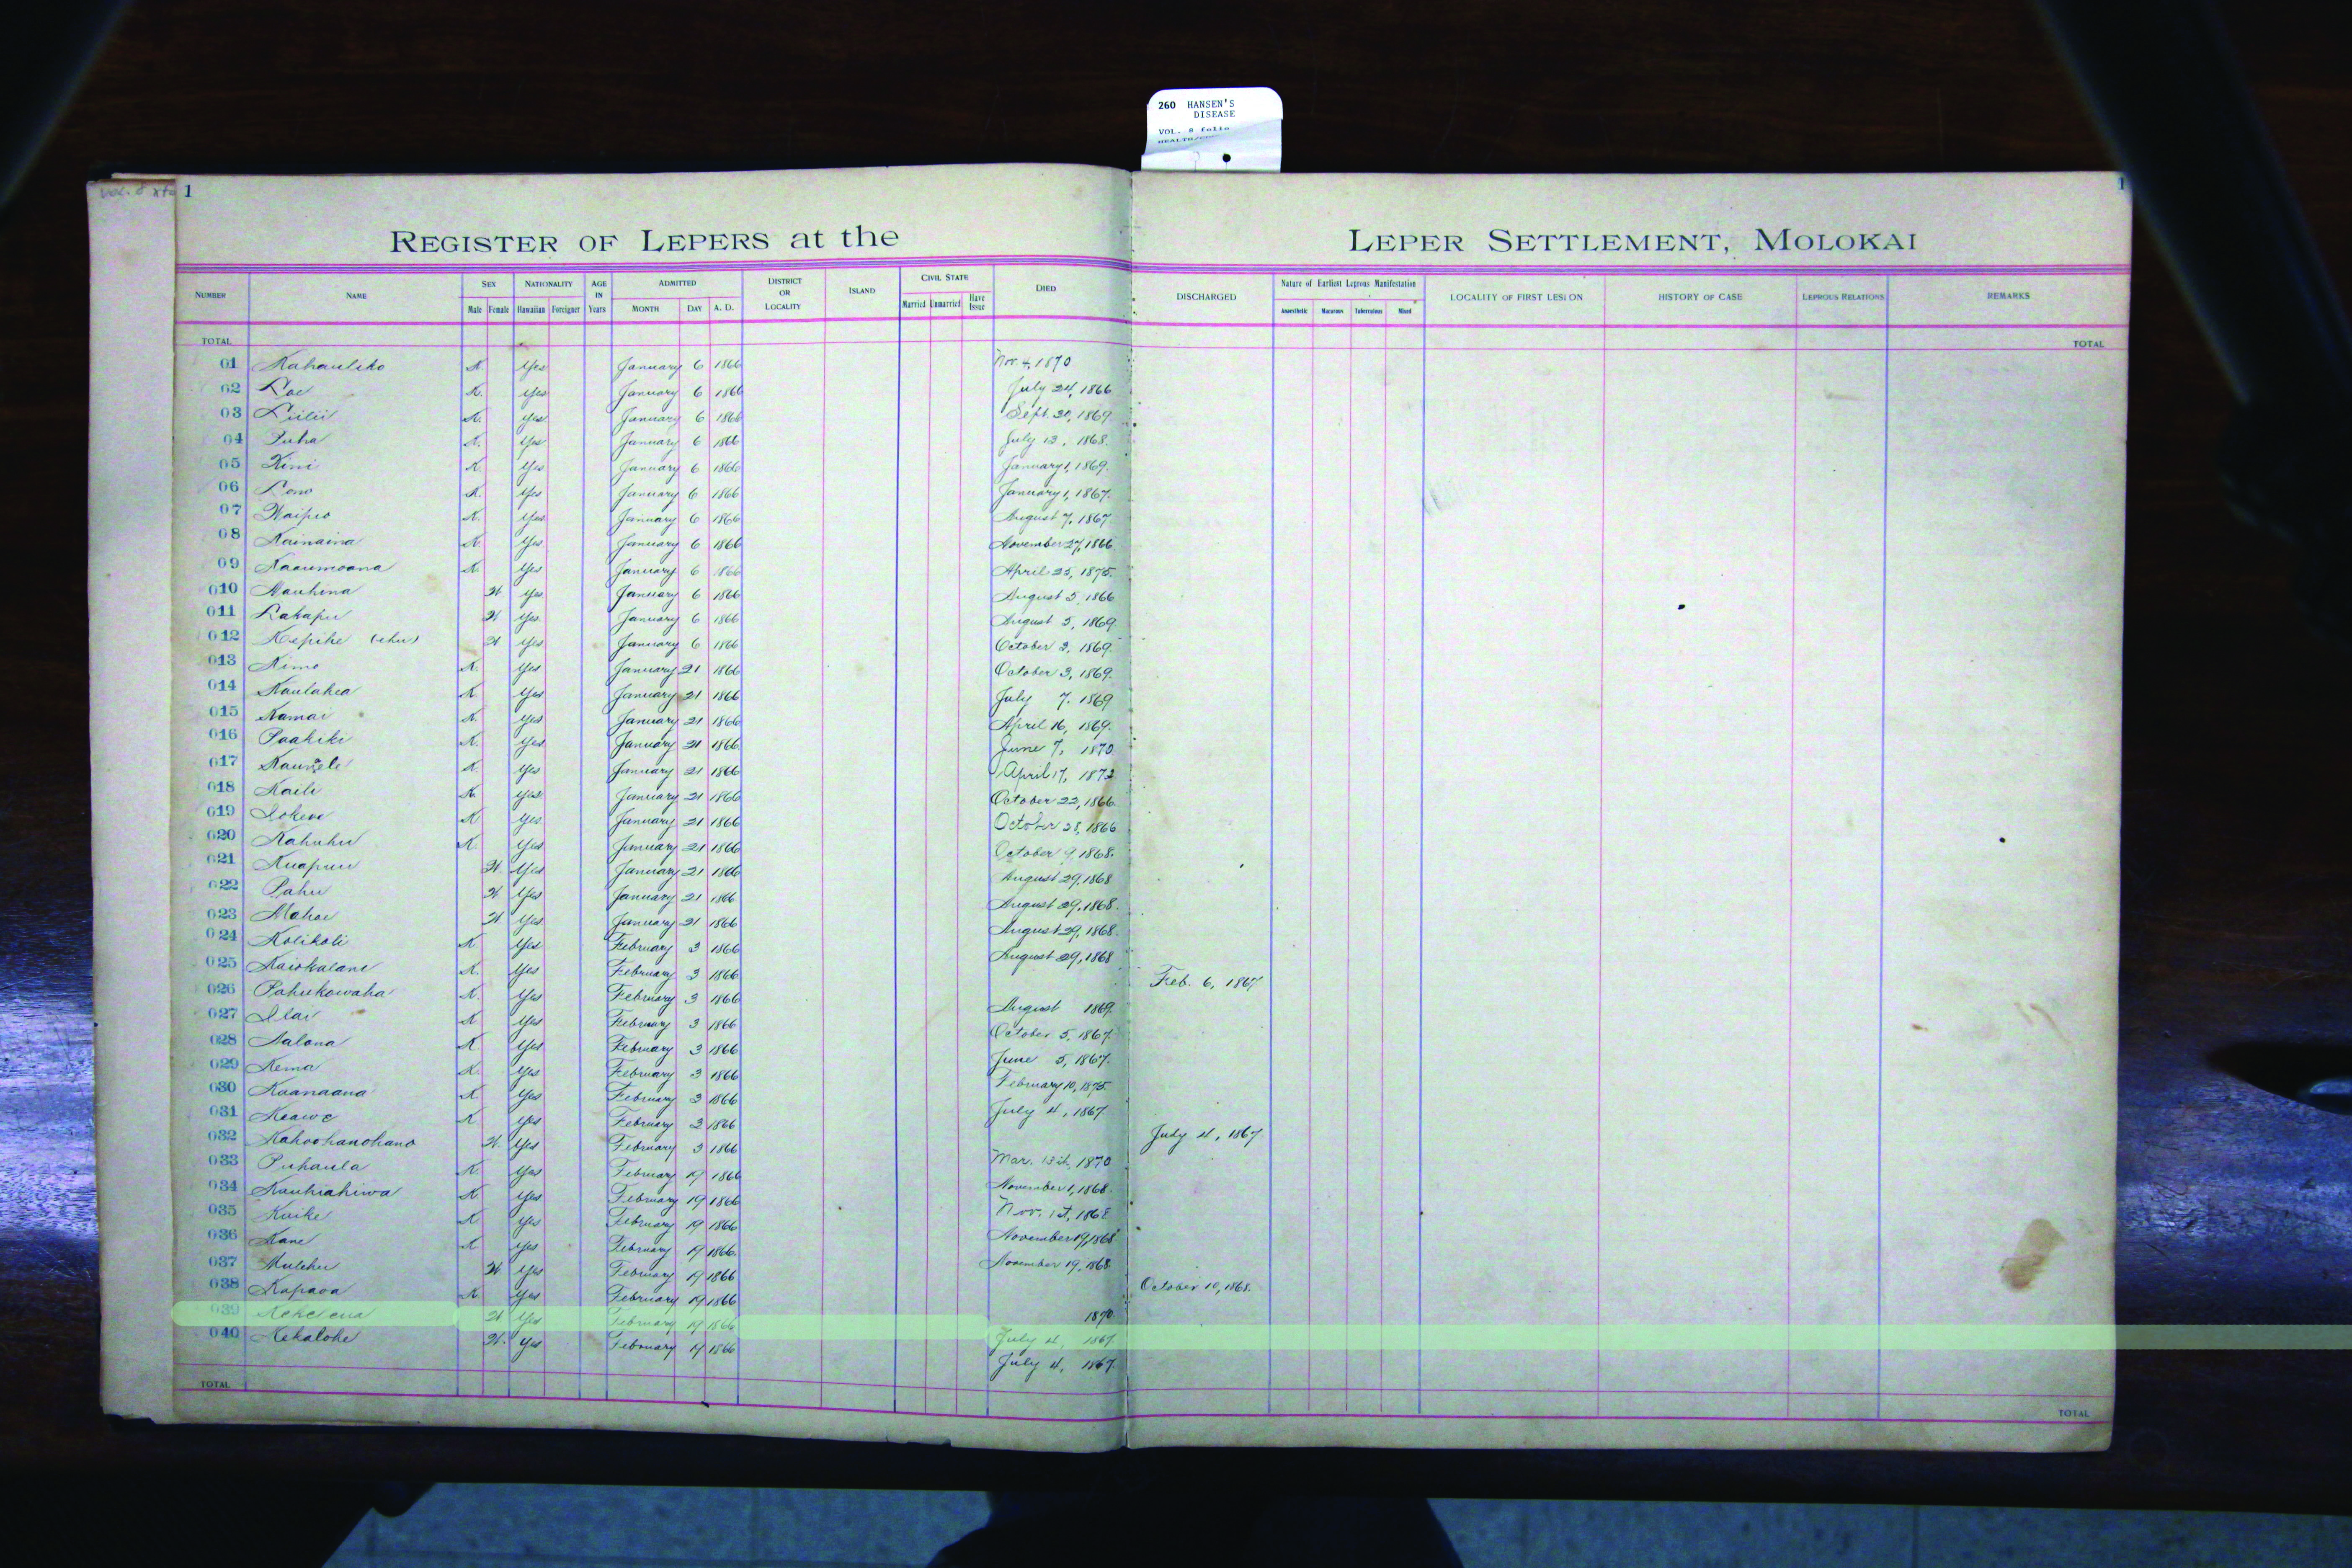 260 HANSEN'S
DISEASE
VOL. 8 folio
1
1
REGISTER OF LEPERS at the LEPER SETTLEMENT, MOLOKAI
NUMBER NAME SEX NATIONALITY AGE IN Years ADMITTED DISTRICT OR LOCALITY ISLAND CIVIL STATE DIED DISCHARGED Nature of Earliest Leprous Manifestation LOCALITY OF FIRST LESION HISTORY OF CASE LEPROUS RELATIONS REMARKS
Male Female Hawaiian Foreigner MONTH DAY A. D. Married Unmarried Have Issue Anaesthetic Macurous Tuberculous Mixed
TOTAL TOTAL
01 Kahauliko K. Yes January 6 1866 Nov. 4, 1870
02 Loe K. Yes January 6 1866 July 24, 1866
03 Liilii K. Yes January 6 1866 Sept. 20, 1869
04 Puha K. Yes January 6 1866 July 13, 1868.
05 Kini K. Yes January 6 1866 January 1, 1869.
06 Lono K. Yes January 6 1866 January 1, 1867.
07 Waipio K. Yes January 6 1866 August 7, 1867
08 Kainaina K. Yes January 6 1866 November 27, 1866
09 Kaaumoana K. Yes January 6 1866 April 25, 1875.
010 Mauhina W Yes January 6 1866 August 5, 1866
011 Lakapu W Yes January 6 1866 August 5, 1869
012 Kepihe (ehu) W Yes January 6 1866 October 3, 1869.
013 Kimo K. Yes January 21 1866 October 3, 1869.
014 Kaulahea K Yes January 21 1866 July 7, 1869
015 Kamai K. Yes January 21 1866 April 16, 1869.
016 Paakiki K. Yes January 21 1866 June 7, 1870
017 K. Yes January 21 1866 April 17, 1872
018 Kaili K. Yes January 21 1866 October 22, 1866
019 Iokewe K Yes January 21 1866 October 28, 1866
020 Kahuhu K. Yes January 21 1866 October 9, 1868.
021 Kuapuu W. Yes January 21 1866 August 29, 1868
022 Pahu W Yes January 21 1866 August 29, 1868.
023 Mahoe W Yes January 21 1866 August 29, 1868.
024 Kolikoli K Yes February 3 1866 August 29, 1868
025 Kaiokalani K. Yes February 3 1866 Feb. 6, 1867
026 Pahukowaha K. Yes February 3 1866 August 1869
027 Ilai K Yes February 3 1866 October 5, 1867
028 Aalona K Yes February 3 1866 June 5, 1867.
029 Kema K. Yes February 3 1866 February 10, 1875
030 Kaanaana K Yes February 3 1866 July 4, 1867
031 Keawe K. Yes February 3 1866 July 4, 1867
032 Kahoohanohano W. Yes February 3 1866 Mar. 13th, 1870
033 Puhaula K. Yes February 19 1866 November 1, 1868.
034 Kauhiahiwa K Yes February 19 1866 Nov. 1st, 1868
035 Kuike K Yes February 19 1866 November 19, 1868
036 Kane K Yes February 19 1866 November 19, 1868
037 Mulehu W. Yes February 19 1866 October 10, 1868.
038 Kapaoa K. Yes February 19 1866 1870
039 W Yes February 19 1866 July 4, 1867
040 Kekalohe W. Yes February 19 1866 July 4, 1867.
TOTAL TOTAL